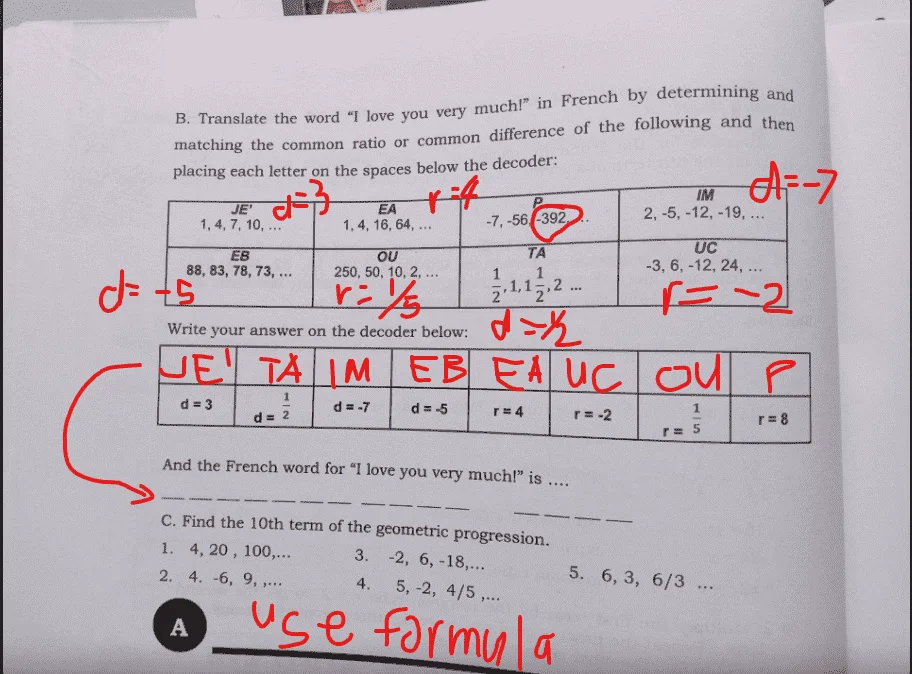 B. Translate the word "I love you very much!" in French by determining and
matching the common ratio or common difference of the following and then
placing each letter on the spaces below the decoder:
JE' d=3 EA r=4 P IM d=-7
1, 4, 7, 10, ... 1, 4, 16, 64, ... -7, -56, -392, ... 2, -5, -12, -19, ...
EB OU TA UC
88, 83, 78, 73, ... 250, 50, 10, 2, ... 1/2, 1, 1 1/2, 2 ... -3, 6, -12, 24, ...
d= -5 r= 1/5 d=1/2 r= -2
Write your answer on the decoder below:
JE' TA IM EB EA UC OU P
d = 3 d = 1/2 d = -7 d = -5 r = 4 r = -2 r = 1/5 r = 8
And the French word for "I love you very much!" is ....
C. Find the 10th term of the geometric progression.
1. 4, 20 , 100,... 3. -2, 6, -18,... 5. 6, 3, 6/3 ...
2. 4. -6, 9, ,... 4. 5, -2, 4/5 ,...
A use formula